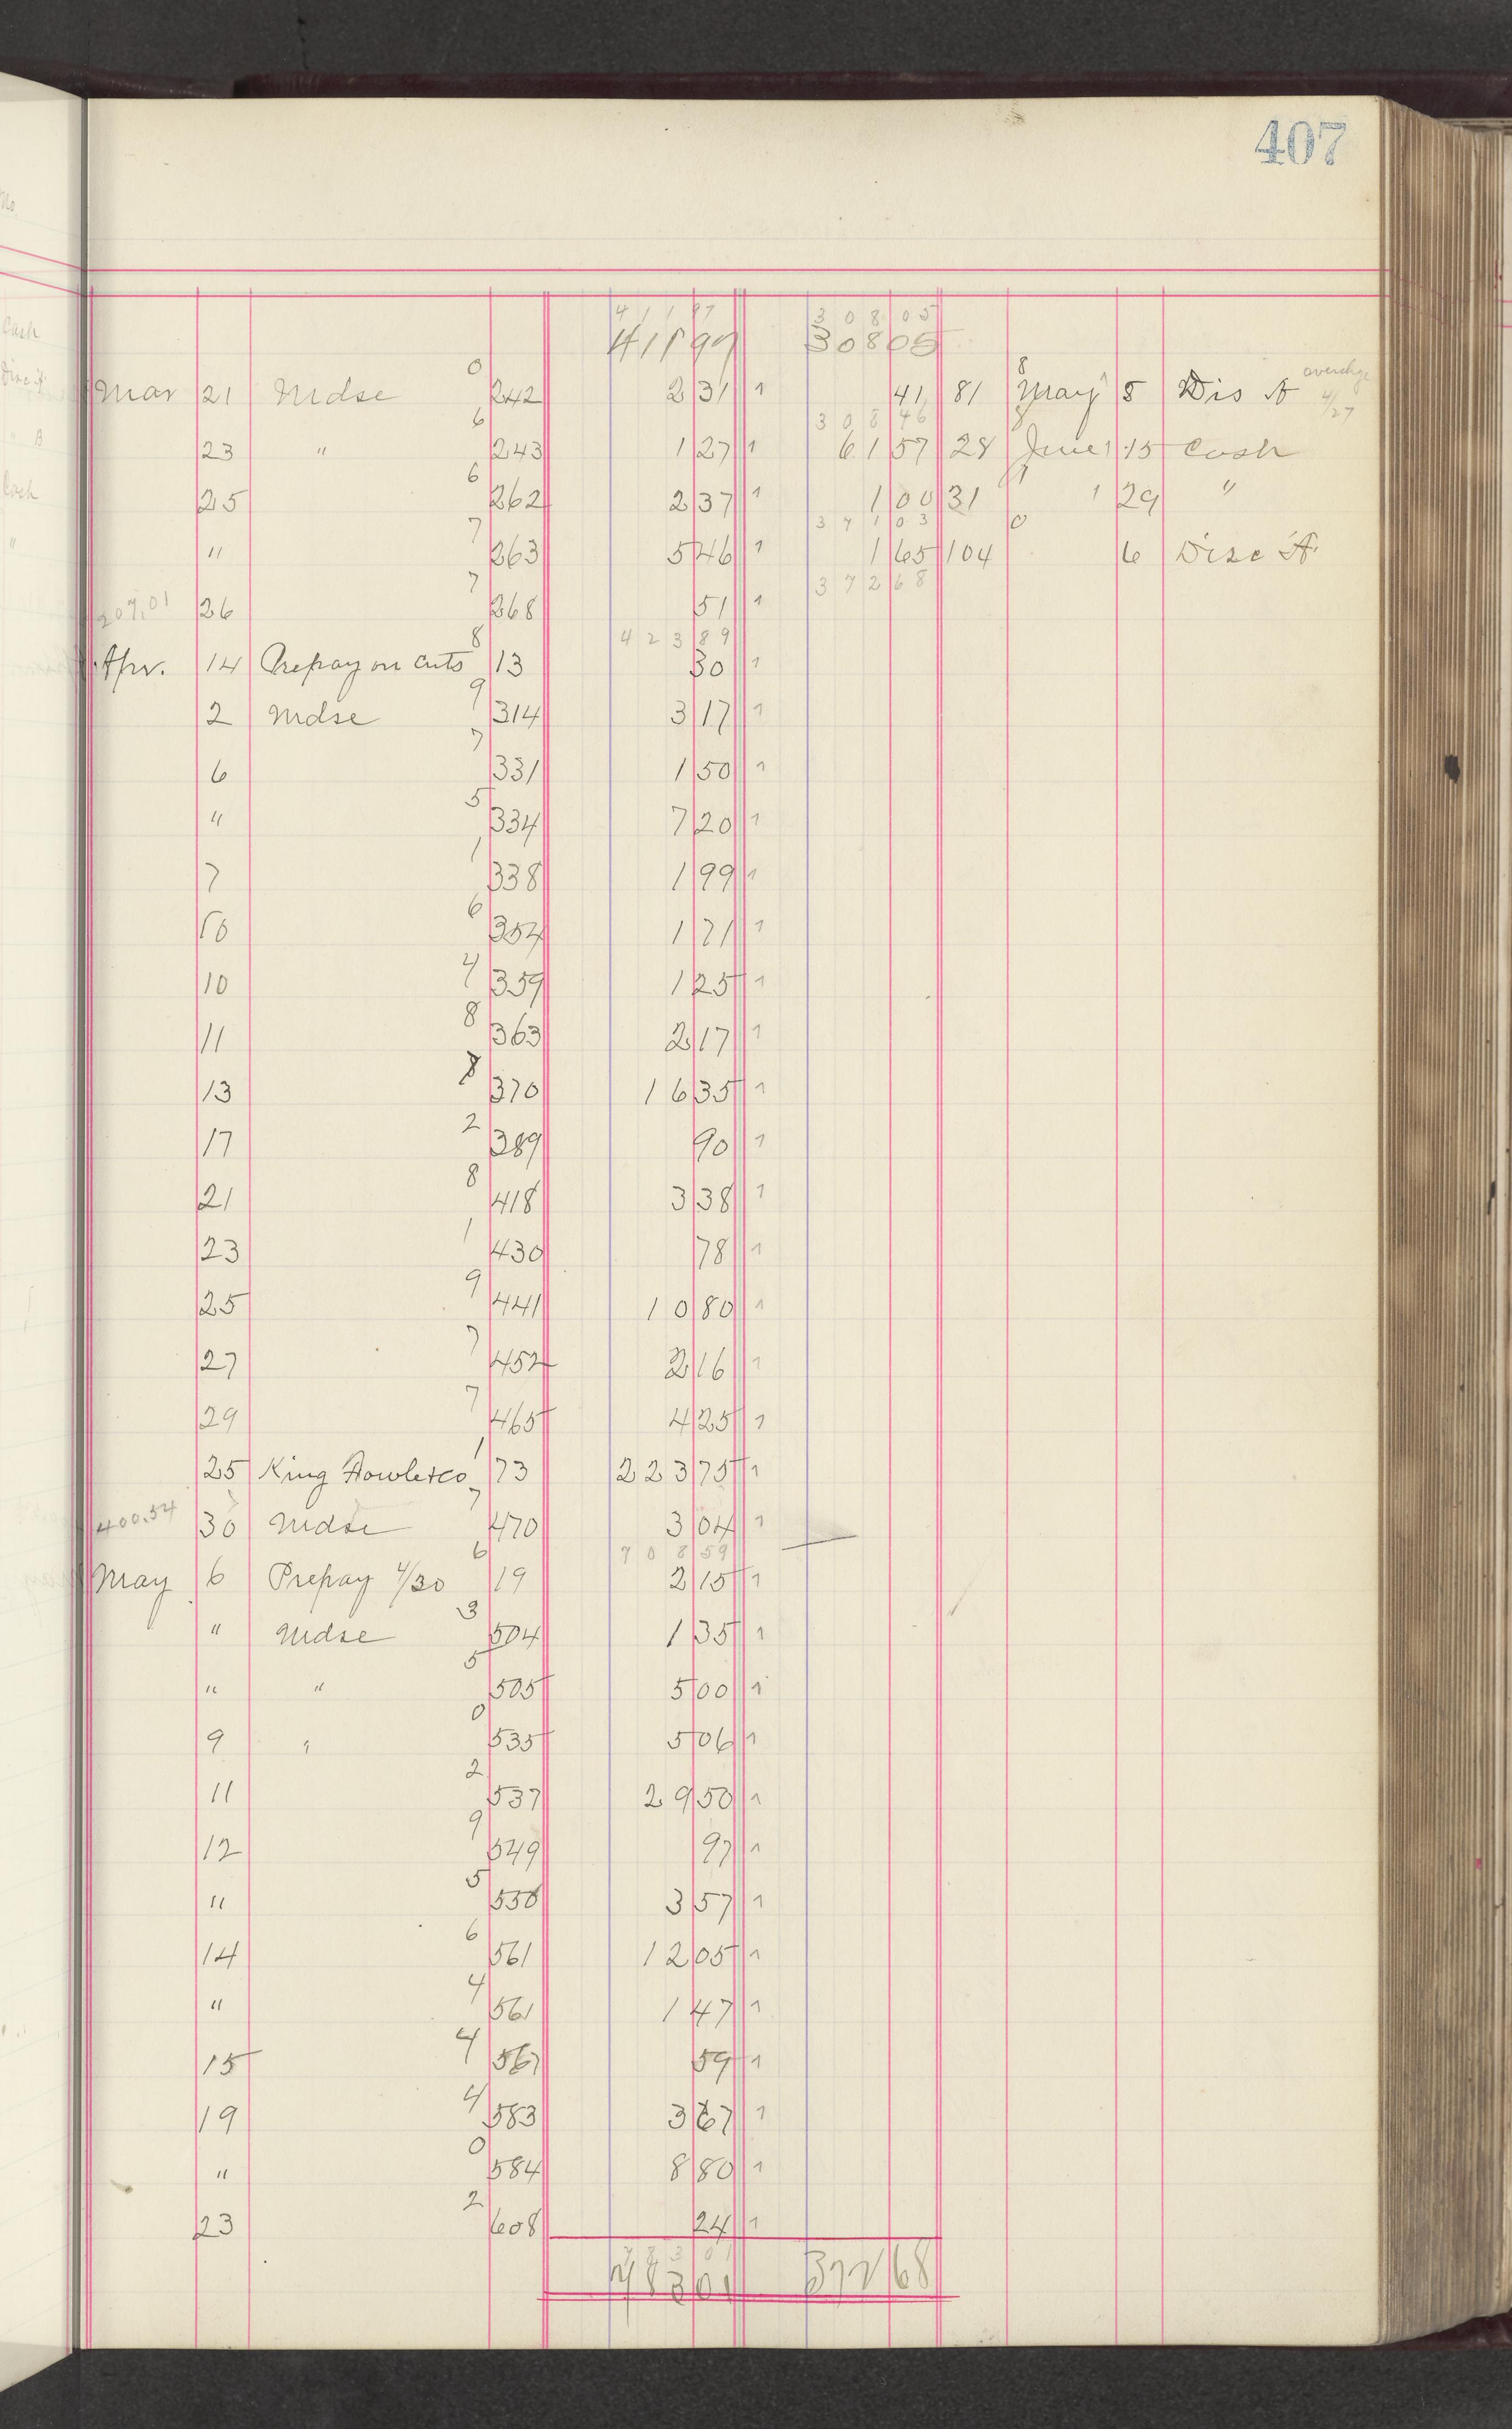 407
411 97 308 05
411 97 308 05
0
Mar 21 Mdse 242 2 31 1 41 81 May 8 Dis A overchge 4/27
6 308 46
23 " 243 1 27 1 61 57 28 June 15 Cash
6
25 262 2 37 1 1 00 31 1 29 "
7 371 03
" 263 5 46 1 1 65 104 6 Disc A
7 372 68
207.01 26 268 51 1
8 423 89
Apr. 14 Prepay on cuts 13 30 1
9
2 Mdse 314 3 17 1
7
6 331 1 50 1
5
" 334 7 20 1
1
7 338 1 99 1
6
10 354 1 71 1
4
10 359 1 25 1
8
11 363 2 17 1
8
13 370 16 35 1
2
17 389 90 1
8
21 418 3 38 1
1
23 430 78 1
9
25 441 10 80 1
7
27 452 2 16 1
7
29 465 4 25 1
1
25 King Fowle & Co 73 223 75 1
7
400.54 30 Mdse 470 3 04 1
6 708 59
May 6 Prepay 4/30 19 2 15 1
3
" Mdse 504 1 35 1
5
" " 505 5 00 1
0
9 " 535 5 06 1
2
11 537 29 50 1
9
12 549 97 1
5
" 550 3 57 1
6
14 561 12 05 1
4
" 561 1 47 1
4
15 567 59 1
4
19 583 3 67 1
0
" 584 8 80 1
2
23 608 24 1
783 01
783 01 372 68